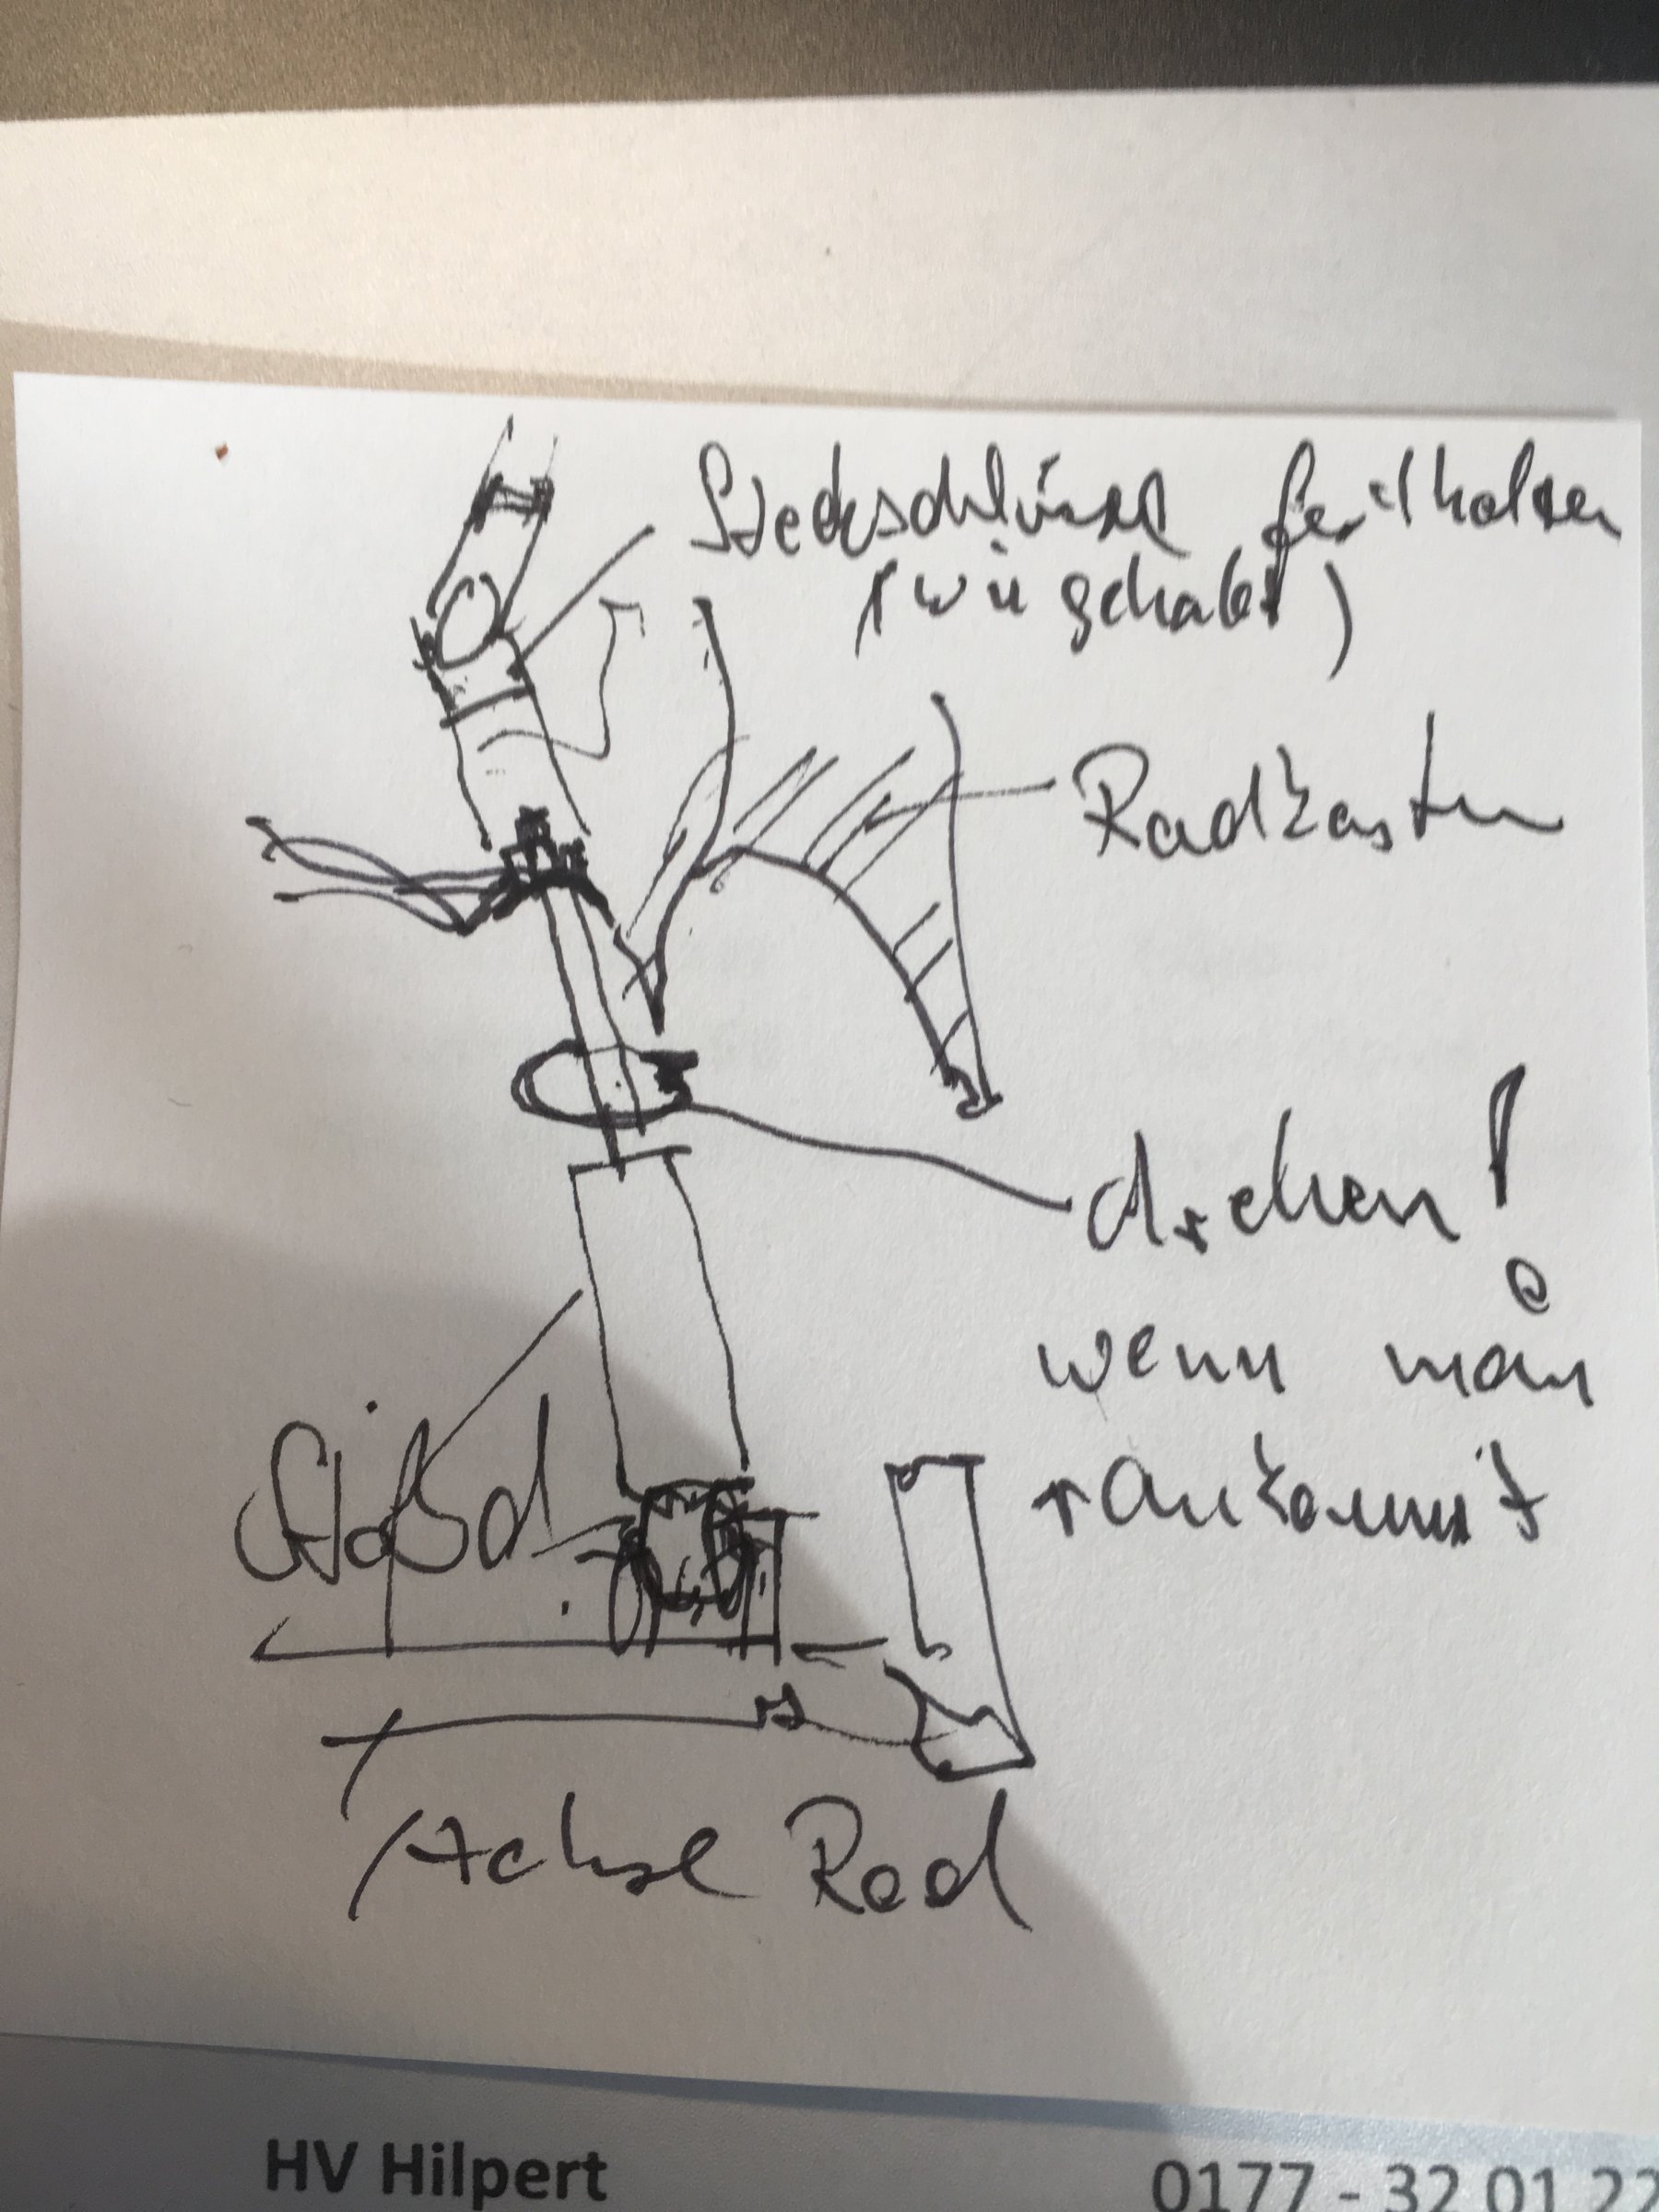 Steckschlüssel festhalten
(wie gehabt)
Radkasten
drehen!
wenn man
rankommt
Stoßd.
Achse Rad
HV Hilpert
0177 - 32 01 22